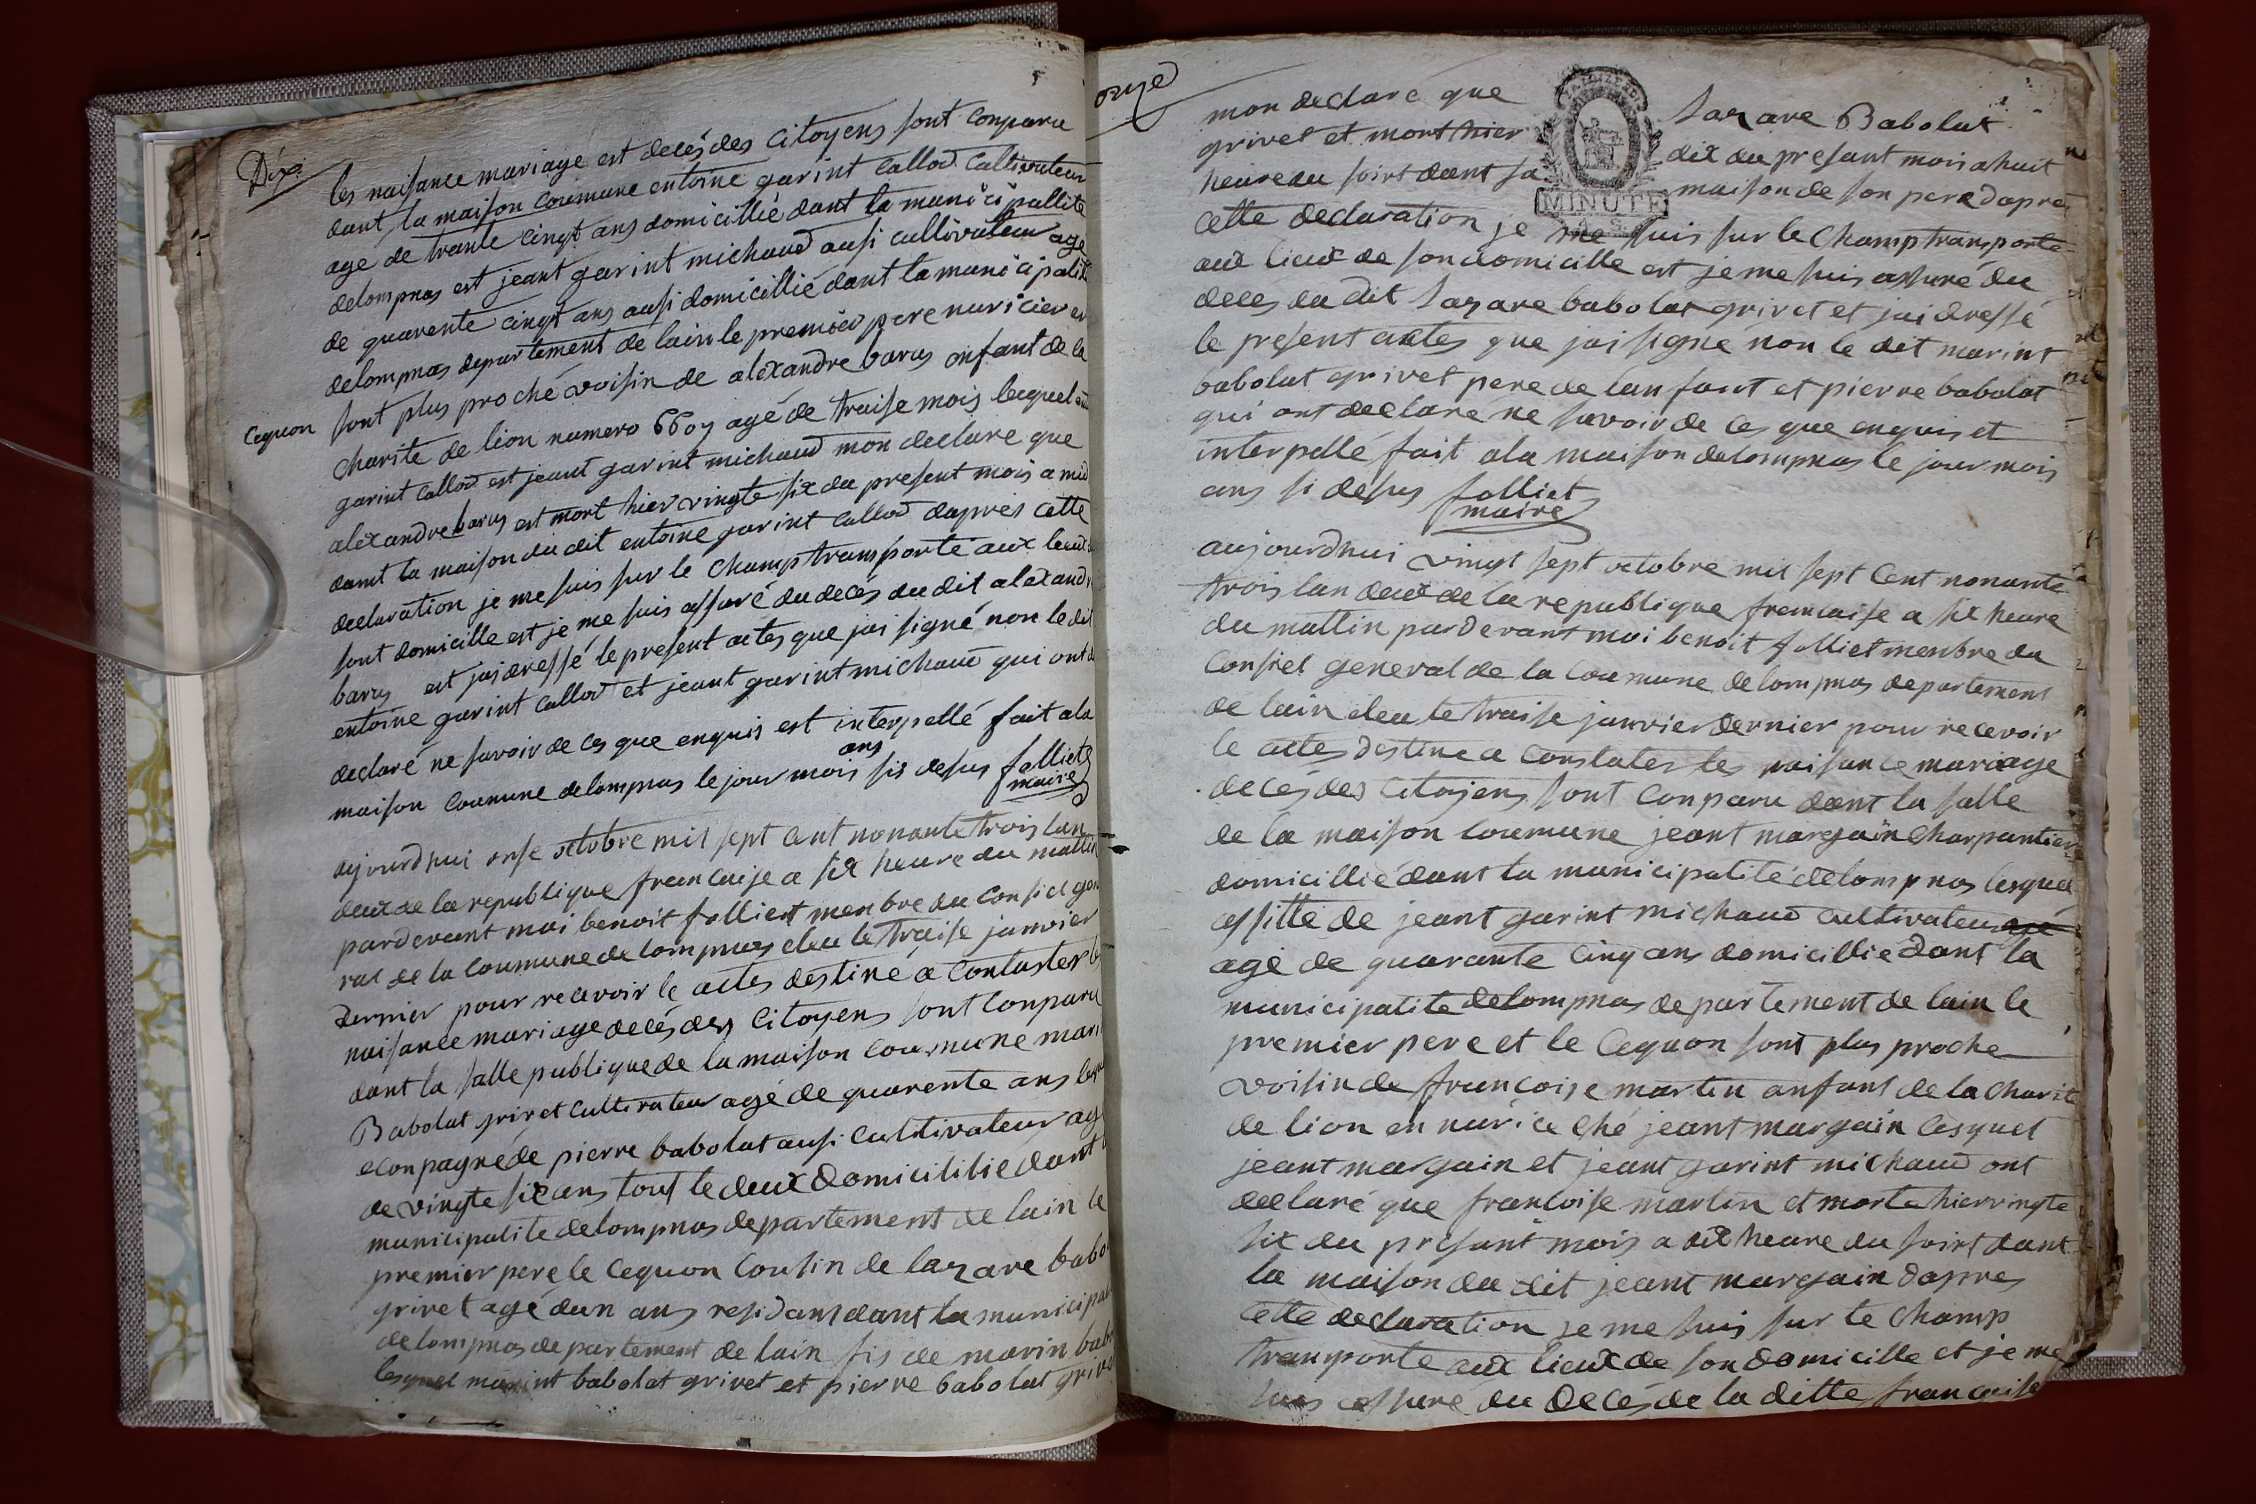 Dix.
les naisance mariage est decés des Citoyens sont Conparu
dant la maison Coumune entoine garint Callod Cultivateur
age de trante cinqt ans domicillié dant la municipallité
delompnas est jeant garint michaud ausi cultivateur agé
de quarente cinqt ans ausi domicillié dant la municipalité
delompnas departement de lain le premier pere nuricier et
Cequon sont plus proché voisin de alexandre barus enfant de la
Charité de lion numero 6607 agé de traise mois lecquel
garint Callod est jeant garint michaud mon declare que
alexandre barus est mort hier vingte six du present mois a midi
dant la maison du dit entoine garint Callod dapres cette
declaration je me suis sur le Champ transporté aux lieux
sont domicille est je me suis assuré du decés du dit alexandre
barus est jai dressé le present actes que jai signé non le dit
entoine garint Callod et jeant garint michaud qui ont
declaré ne savoir de ces que enquis est interpellé fait a la
maison Coumune delompnas le jour mois ans sis desus folliet
maire
aujourdhui onse octobre mil sept Cent nonante trois lan
deux de la republique francaise a six heure du mattin
pardevant moi benoit folliet menbre du Consiel gene
ral de la Coumune delompnas eleu le traise janvier
dernier pour recevoir le actes destiné a Contaster les
naisance mariage decés des Citoyens sont Conparu
dant la salle publique de la maison Coumune marin
Babolat grivet Cultivateur agé de quarente ans lequel
aconpagné de pierre babolat ausi Cultivateur agé
de vingte six ans tous le deux Domicillié dant la
municipalite delompnas departement de lain le
premier pere le Cequon Cousin de lazare babolat
grivet agé dun ans residans dant la municipalité
delompnas departement de lain fis de marin babolat
lesquel marint babolat grivet et pierre babolat grivet
onze
mon declaré que Lazare Babolat
grivet et mort hier dix du presant mois a huit
heure du soirt dant sa maison de son pere dapres
MINUTE
cette declaration je me suis sur le Champ transporte
aux lieux de son domicille est je me suis assuré du
deces du dit Lazare babolat grivet et jai dressé
le present actes que jai signé non le dit marint
babolat grivet pere de lanfant et pierre babolat
qui ont declare ne savoir de ces que enquis et
interpellé fait a la maison delompnas le jour mois
ans si desus folliet
maire
aujourdhui vingt sept octobre mil sept Cent nonante
trois lan deux de la republique francaise a six heure
du mattin pardevant moi benoit folliet menbre du
Consiel general de la Coumune delompnas departement
de lain eleu le traise janvier dernier pour recevoir
le actes destine a Constater les naisance mariage
decés des Citoyens sont Conparu dant la salle
de la maison Coumune jeant margain Charpantier
domicillié dant la municipalité delompnas lesquel
assitté de jeant garint michaud Cultivateur agé
agé de quarante Cinq ans domicillié dant la
municipalite delompnas departement de lain le
premier pere et le Cequon sont plus proche
voisin de francoise martin anfant de la Charité
de lion en nurice Ché jeant margain lesquel
jeant margain et jeant garint michaud ont
declaré que francoise martin et morte hier vingte
six du présant mois a dix heure du soirt dant
la maison du dit jeant margain dapres
cette declaration je me suis sur le Champ
transporte aux lieux de son domicille et je me
suis assuré du deces de la ditte francoise